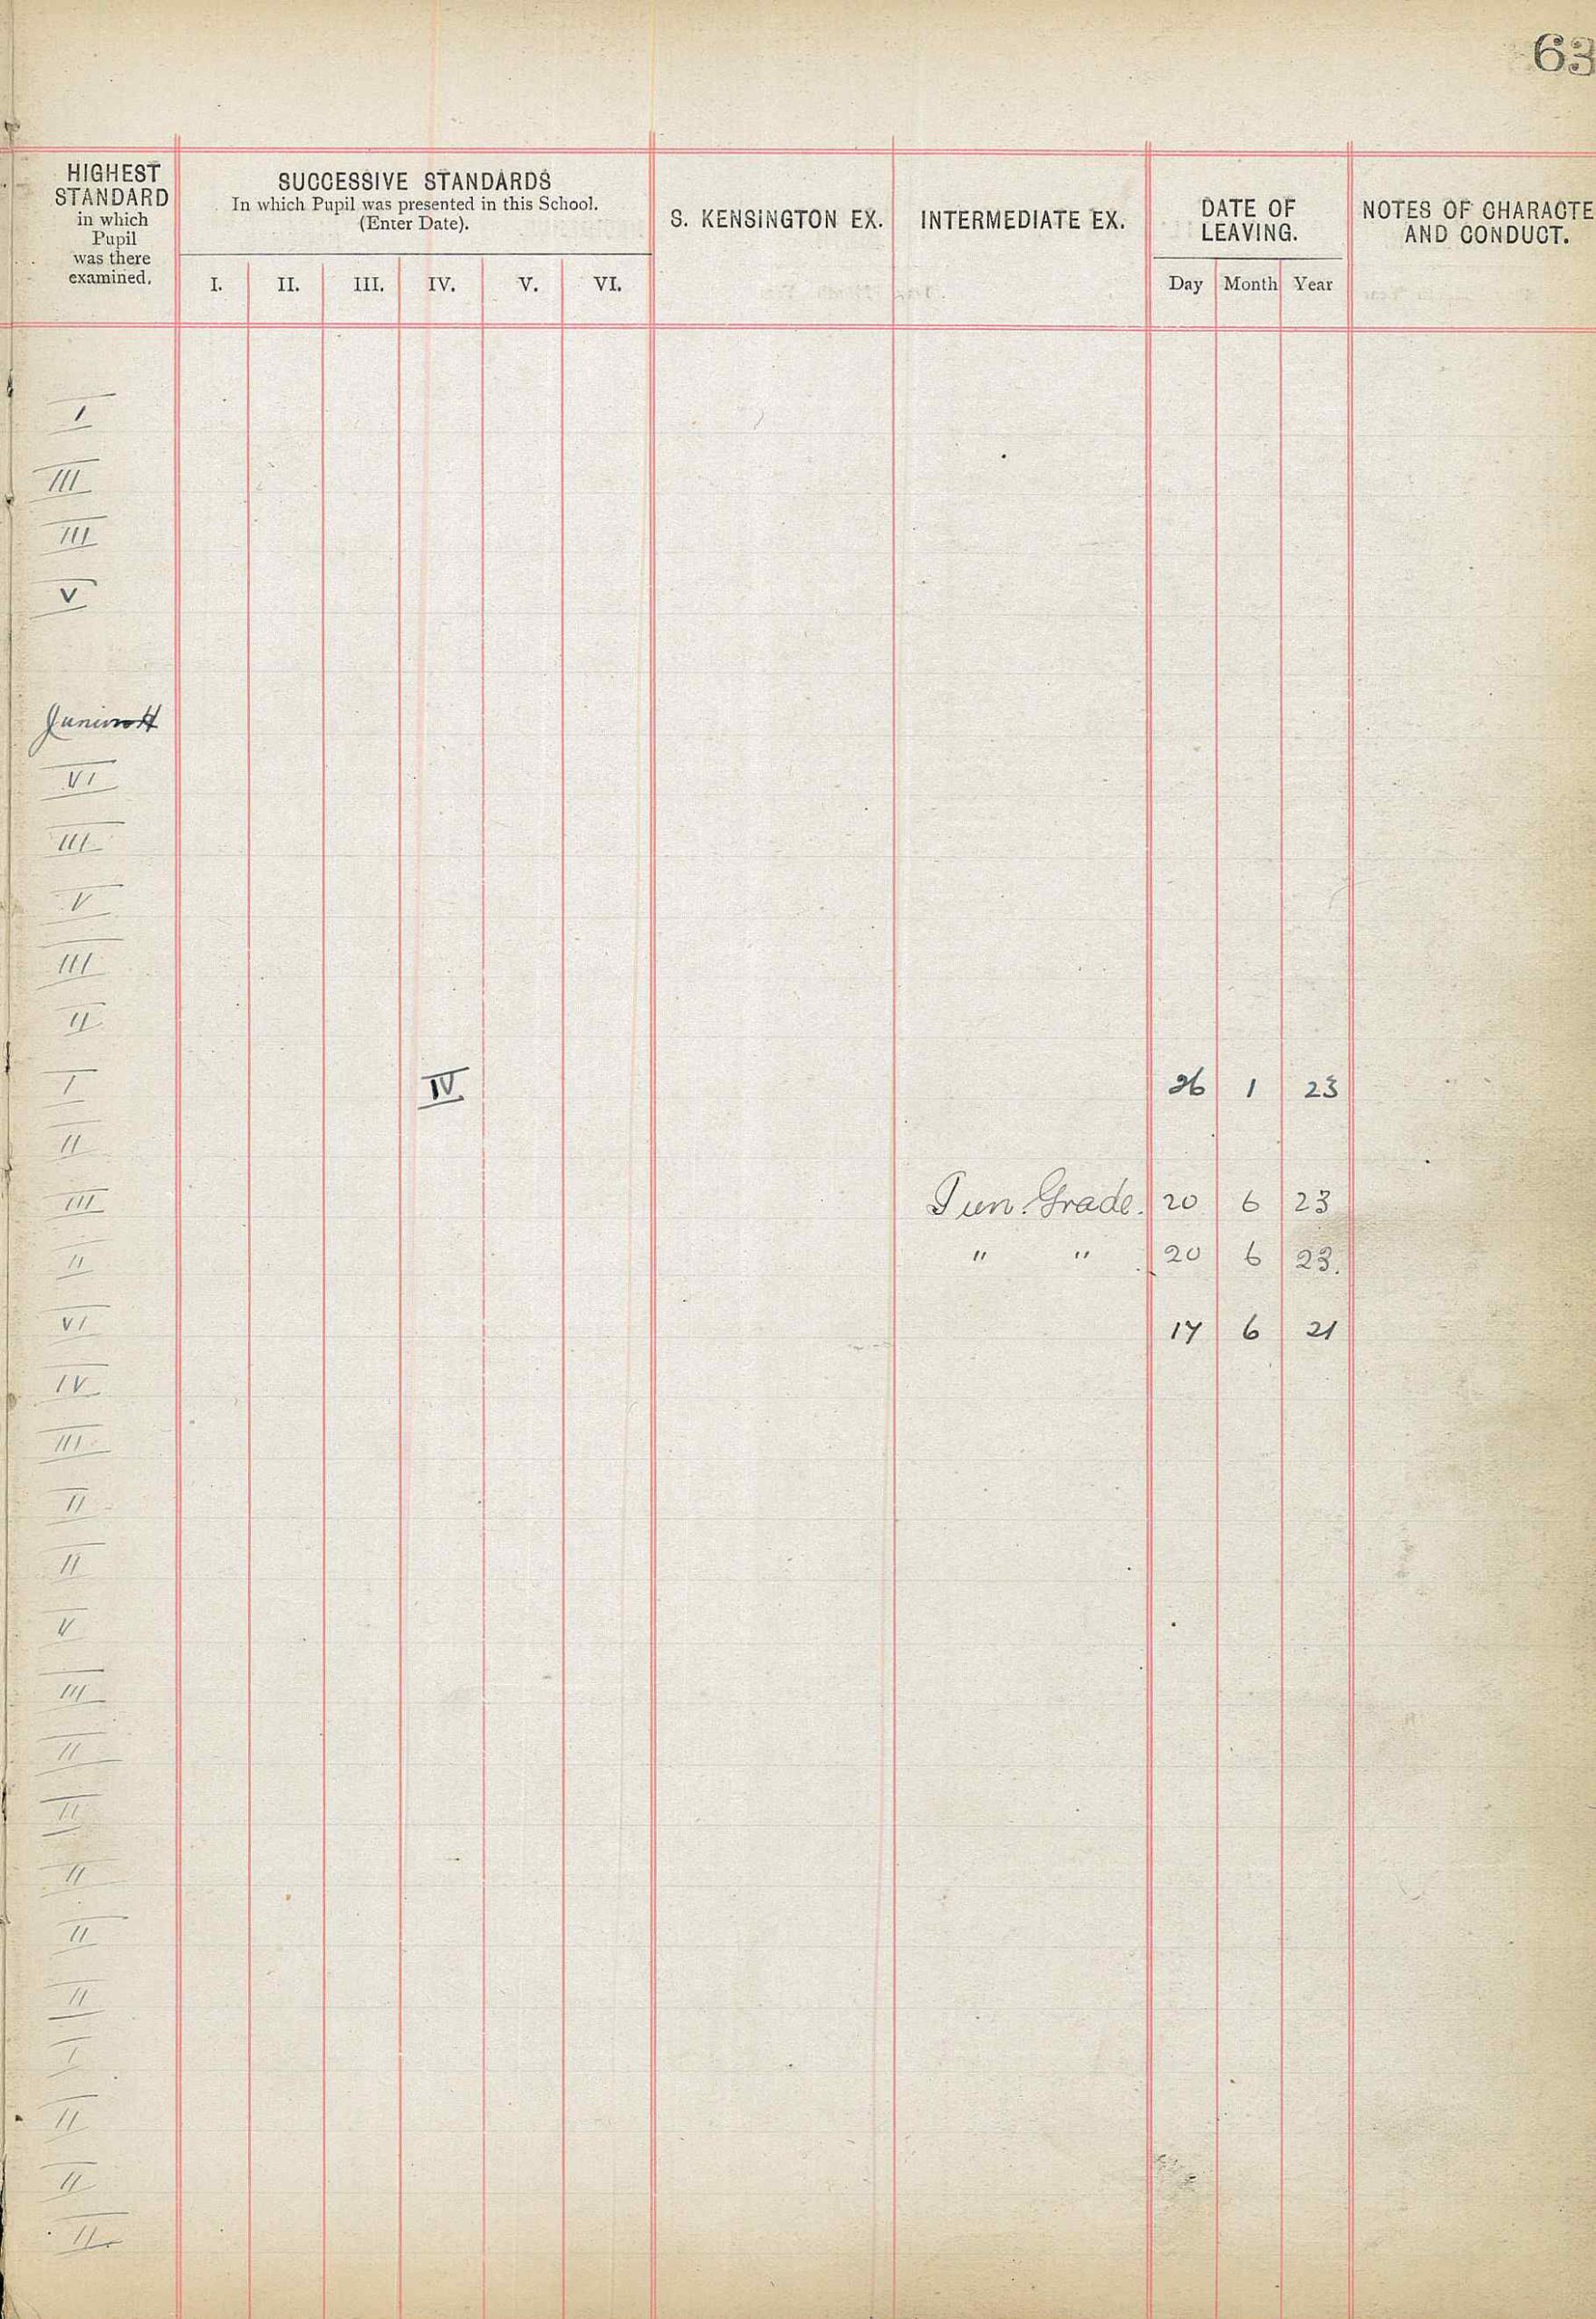 63
HIGHEST STANDARD in which Pupil was there examined.
SUCCESSIVE STANDARDS
In which Pupil was presented in this School.
(Enter Date).
I. II. III. IV. V. VI.
S. KENSINGTON EX.
INTERMEDIATE EX.
DATE OF LEAVING.
Day Month Year
NOTES OF CHARACTE
AND CONDUCT.
I
III
III
V
VI
III
V
III
II
I IV 26 1 23
II
III Jun. Grade. 20 6 23
II " " 20 6 23.
VI 17 6 21
IV
III
II
II
V
III
II
II
II
II
II
I
II
II
II